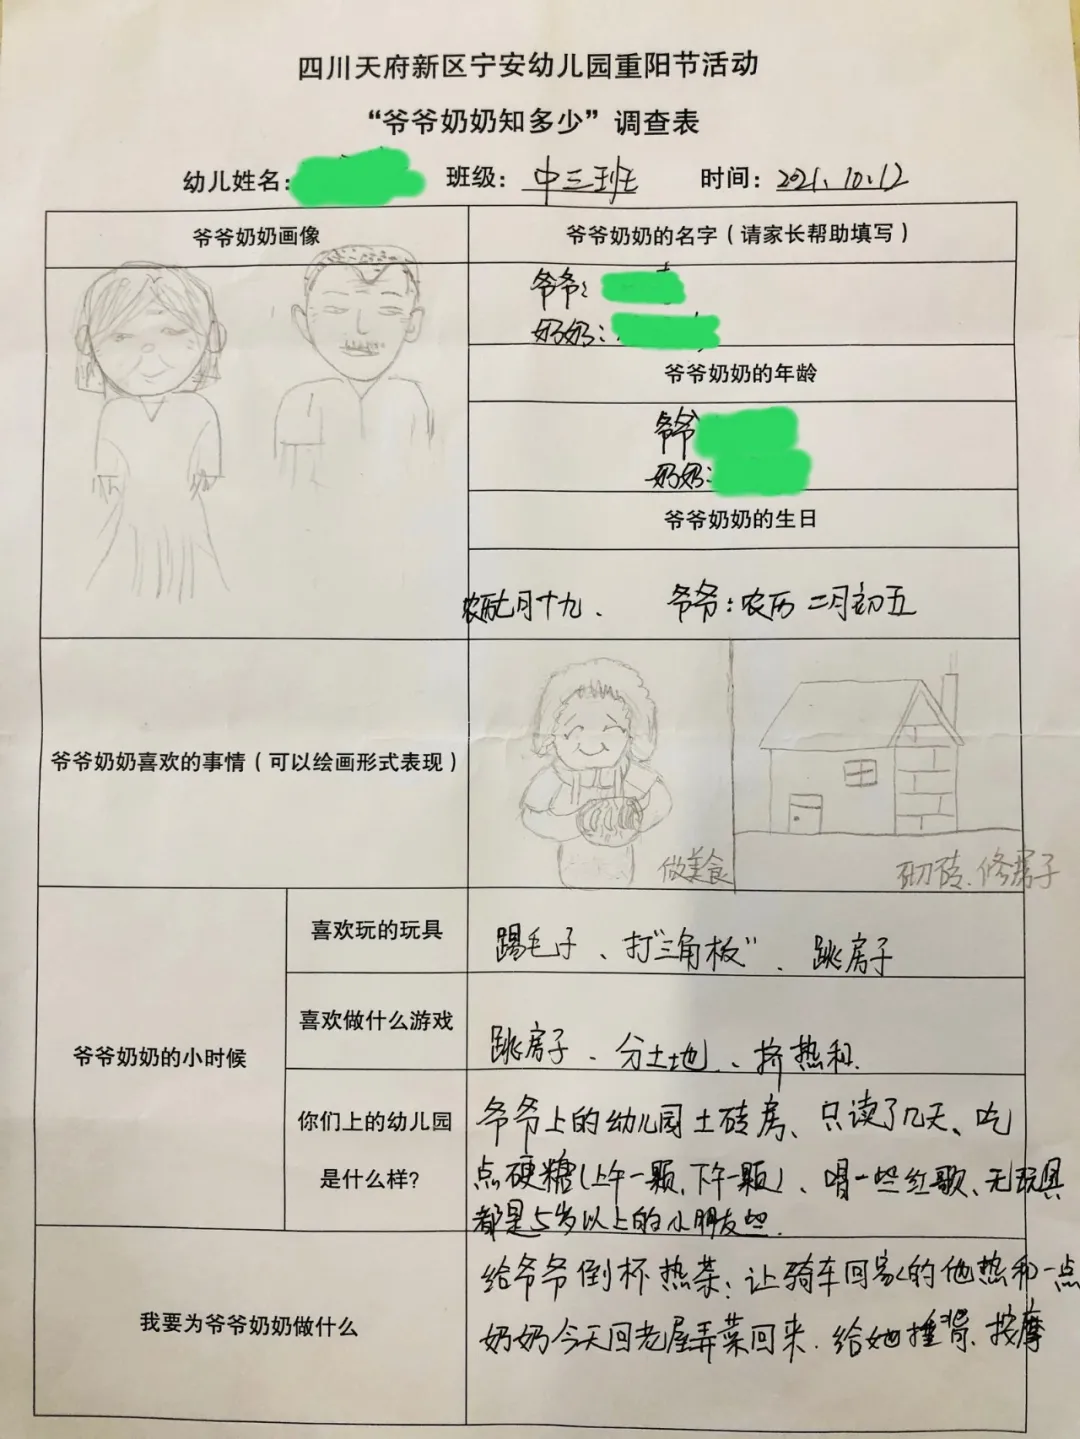 四川天府新区宁安幼儿园重阳节活动
“爷爷奶奶知多少”调查表
幼儿姓名: 班级: 中三班 时间: 2021.10.12
爷爷奶奶画像
爷爷奶奶的名字（请家长帮助填写）
爷爷:
奶奶:
爷爷奶奶的年龄
爷爷
奶奶:
爷爷奶奶的生日
农历七月十九. 爷爷:农历二月初五
爷爷奶奶喜欢的事情（可以绘画形式表现）
做美食
砌砖.修房子
爷爷奶奶的小时候
喜欢玩的玩具
踢毛子、打“三角板”、跳房子
喜欢做什么游戏
跳房子、分土地、挤热和.
你们上的幼儿园
是什么样?
爷爷上的幼儿园土砖房、只读了几天、吃
点硬糖(上午一颗,下午一颗)、唱一些红歌、无玩具
都是5岁以上的小朋友些.
我要为爷爷奶奶做什么
给爷爷倒杯热茶;让骑车回家的他热和一点
奶奶今天回老屋弄菜回来.给她捶背、按摩